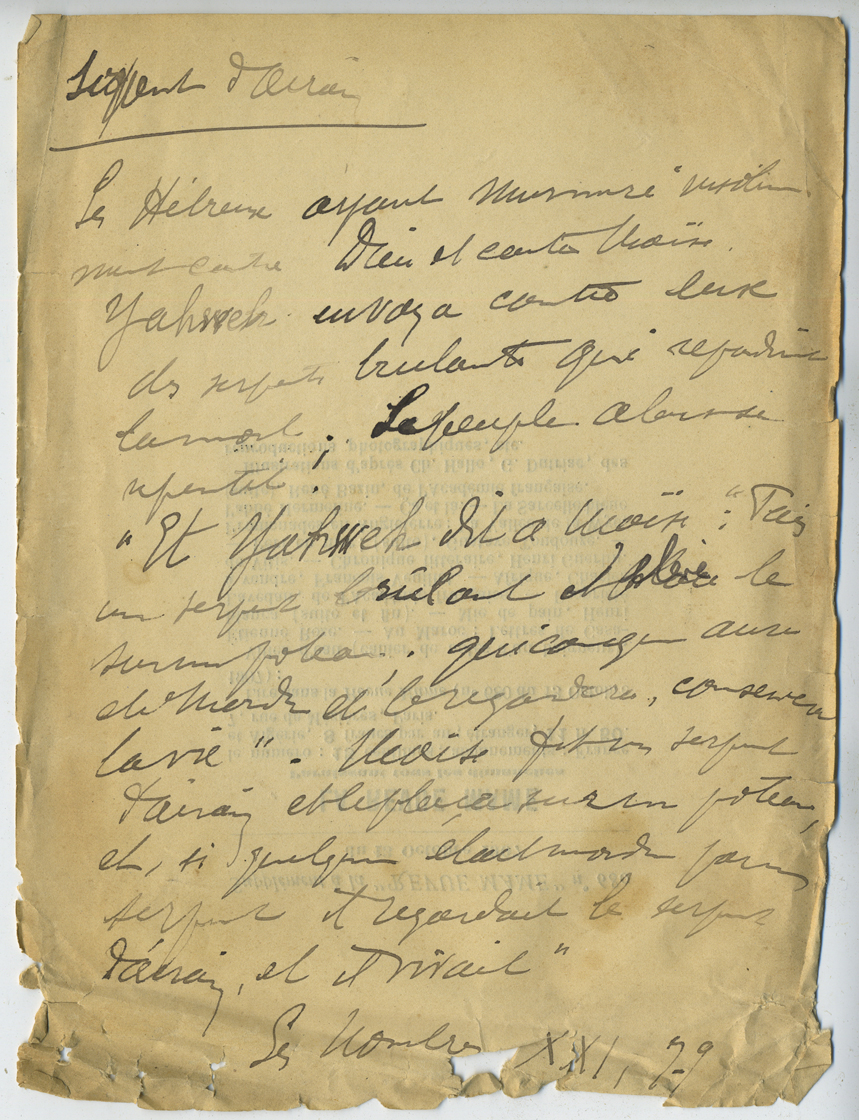 Serpent d'Airain
Les Hébreux ayant murmuré
ment contre Dieu et contre Moïse.
Yahweh envoya contre eux
des serpents brulants qui répandirent
la mort. Le peuple alors se
repentit :
"Et Yahweh dit à Moïse : "Fais
un serpent brûlant et place le
sur un poteau ; quiconque aura
été mordu et le regardera, conservera
la vie". Moïse fit un serpent
d'airain et le plaça sur un poteau,
et, si quelqu'un était mordu par un
serpent il regardait le serpent
d'airain, et il vivait"
Les Nombres XXI, 7-9